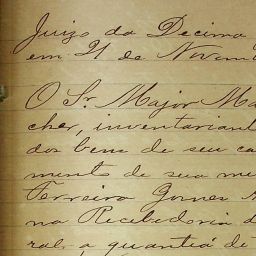 Juizo da Decima
em 21 de Novem
O Sr. Major Ma
cher, inventariant
dos bens de seu ca
mento de sua mu
Ferreira Gomes
na Recebedoria d
ral a quantiá de